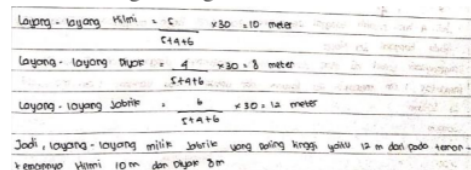 Layang-layang Hilmi = 5 x30 = 10 meter
5+4+6
Layang-layang Diyok = 4 x30 = 8 meter
5+4+6
Layang-layang Jabrik = 6 x30 = 12 meter
5+4+6
Jadi, layang-layang milik Jabrik yang paling tinggi yaitu 12 m dari pada teman-
temannya Hilmi 10m dan Diyok 8m